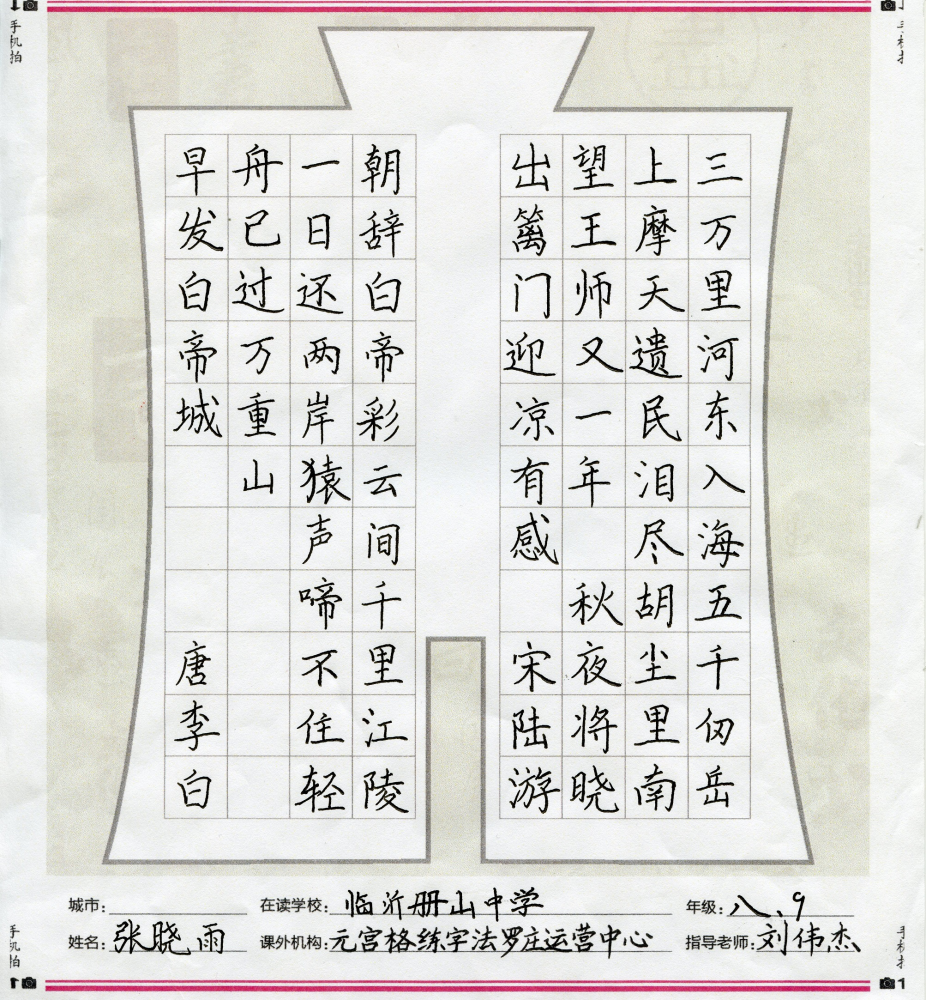 手机拍
手机拍
三万里河东入海五千仞岳
上摩天遗民泪尽胡尘里南
望王师又一年 秋夜将晓
出篱门迎凉有感 宋陆游
朝辞白帝彩云间千里江陵
一日还两岸猿声啼不住轻
舟已过万重山
早发白帝城 唐李白
城市：
在读学校：临沂册山中学
年级：八、9
姓名：张晓雨
课外机构：元宫格练字法罗庄运营中心
指导老师：刘伟杰
手机拍
手机拍